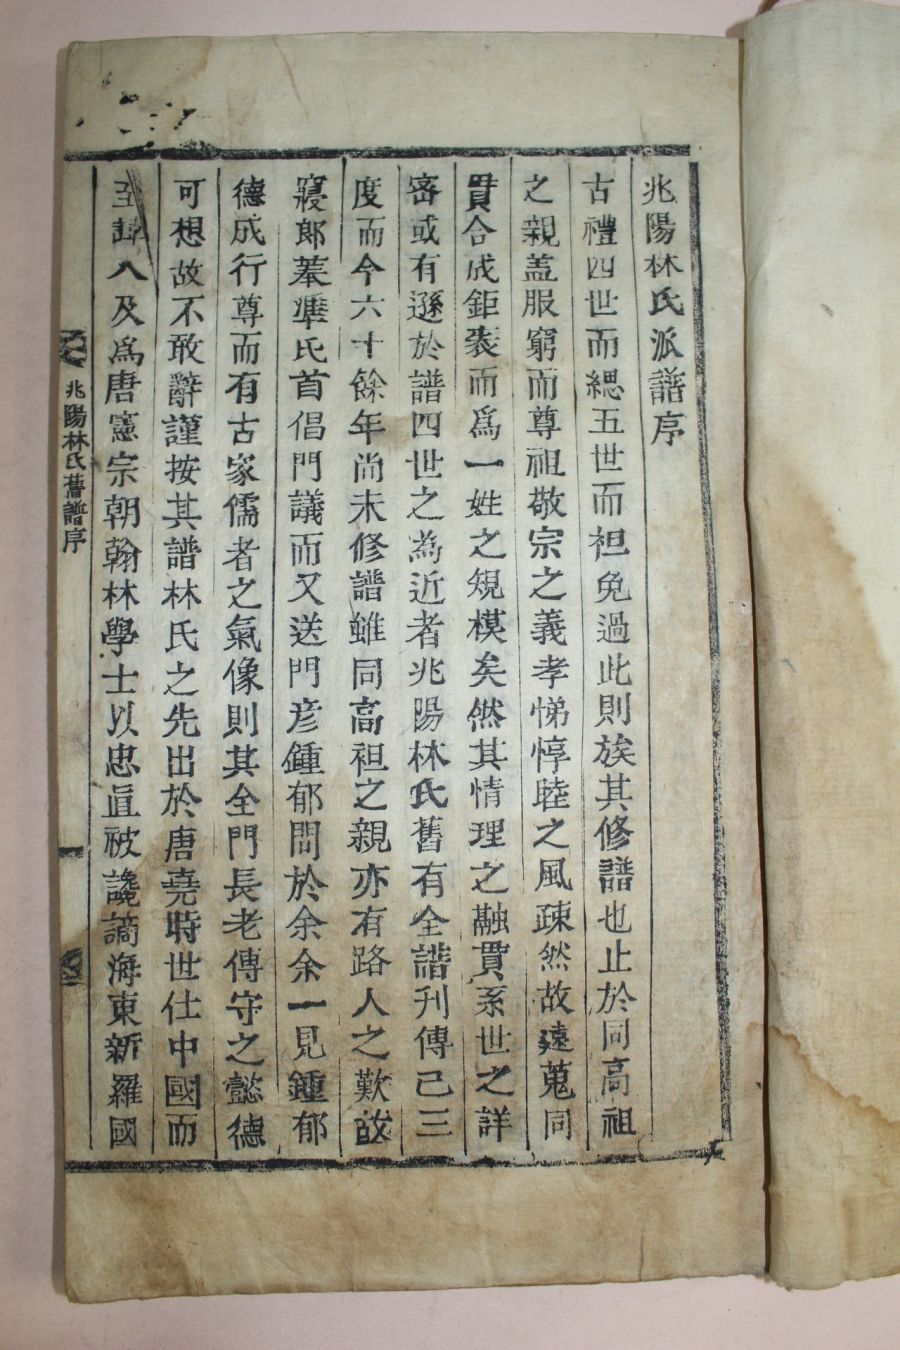 兆陽林氏派譜序
古禮四世而緦五世而袒免過此則族其修譜也止於同高祖
之親盖服窮而尊祖敬宗之義孝悌惇睦之風疎然故遠蒐同
貫合成鉅袠而爲一姓之䂓模矣然其情理之融貫系世之詳
密或有遜於譜四世之為近者兆陽林氏舊有全譜刋傳已三
度而今六十餘年尚未修譜雖同高祖之親亦有路人之歎故
寢郎萶準氏首倡門議而又送門彦鍾郁問於余余一見鍾郁
德成行尊而有古家儒者之氣像則其全門長老傳守之懿德
可想故不敢辭謹按其譜林氏之先出於唐堯時世仕中國而
至諱八及爲唐憲宗朝翰林學士以忠直被讒謫海東新羅國
兆陽林氏舊譜序